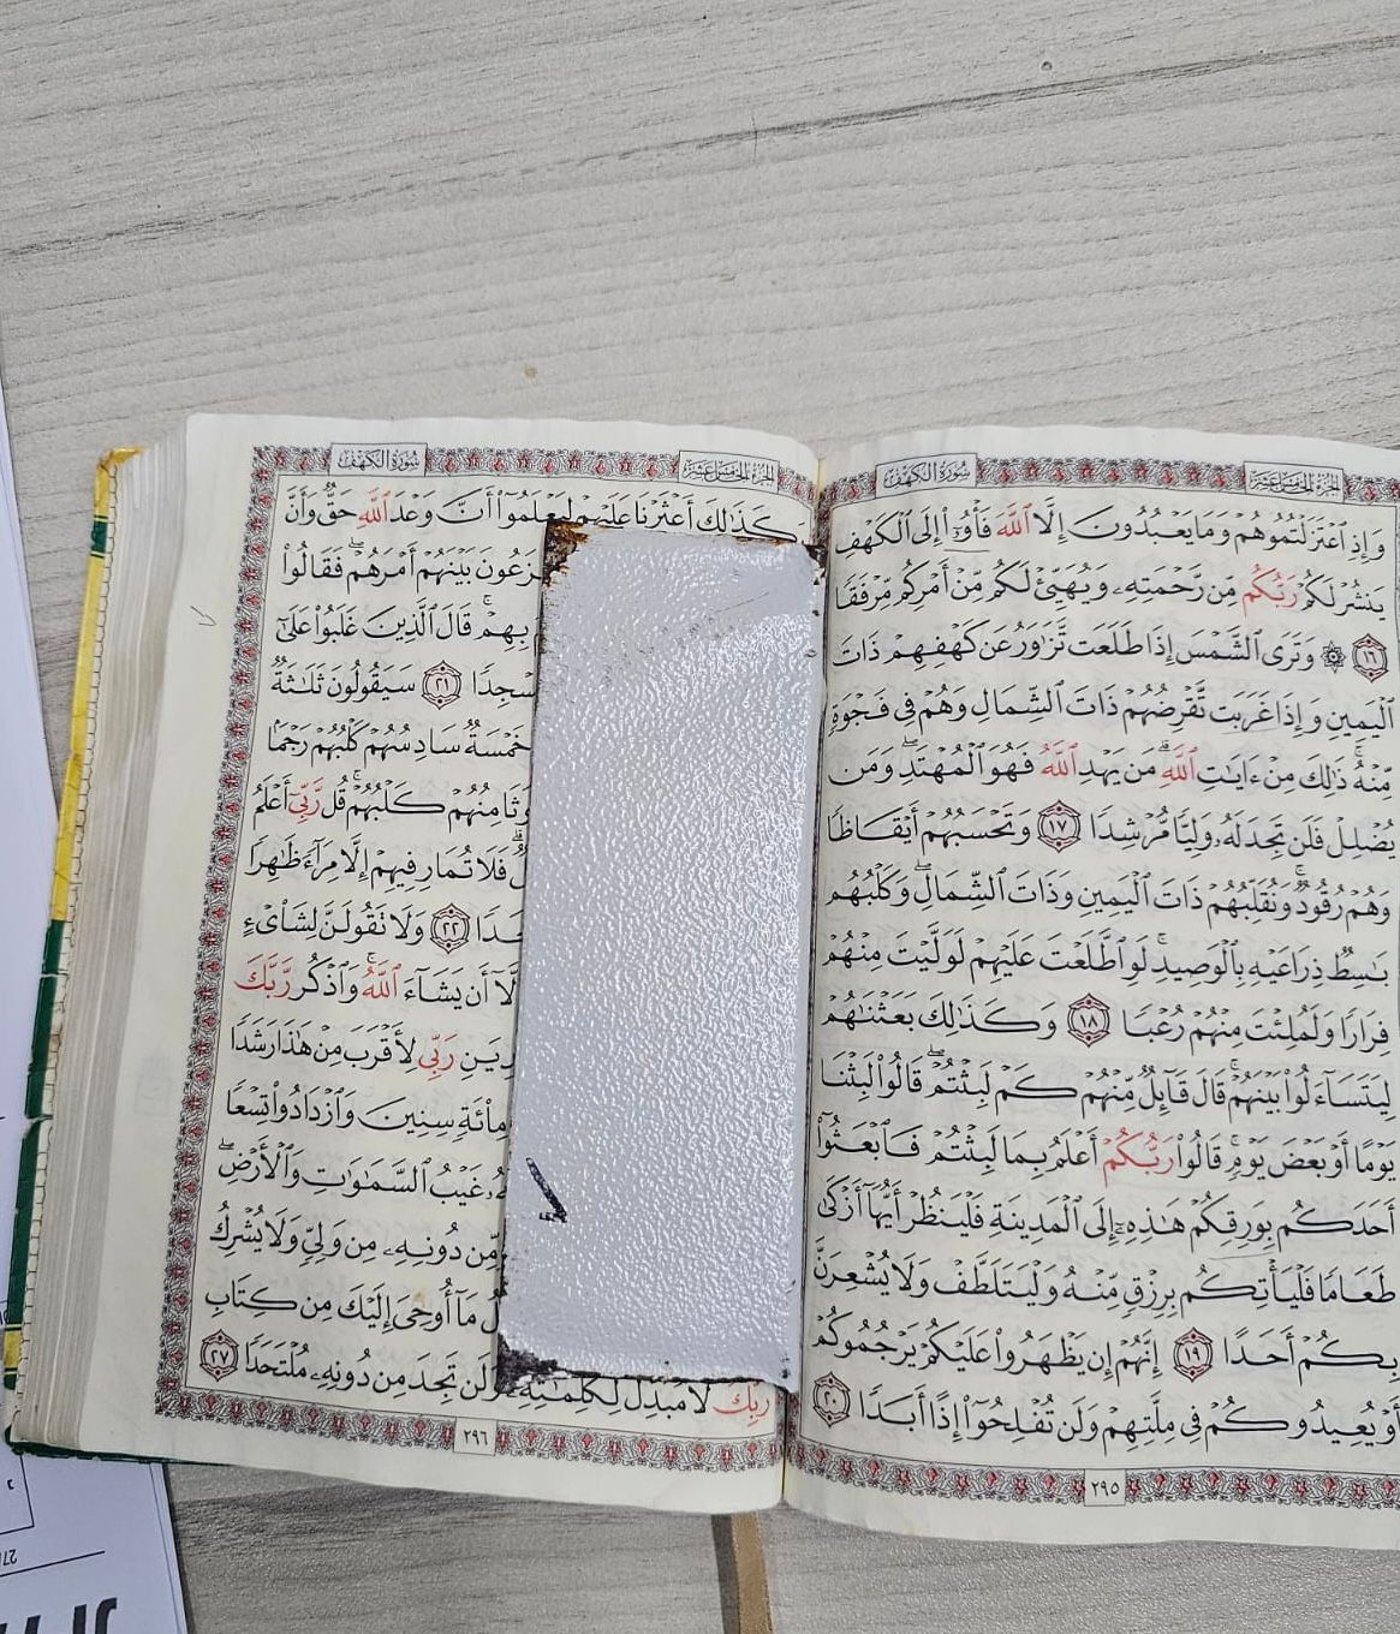 سورة الكهف
الجزء الخامس عشر
وَإِذِ ٱعْتَزَلْتُمُوهُمْ وَمَا يَعْبُدُونَ إِلَّا ٱللَّهَ فَأْوُۥٓا۟ إِلَى ٱلْكَهْفِ
يَنشُرْ لَكُمْ رَبُّكُم مِّن رَّحْمَتِهِۦ وَيُهَيِّئْ لَكُم مِّنْ أَمْرِكُم مِّرْفَقًا
١٦ ۞ وَتَرَى ٱلشَّمْسَ إِذَا طَلَعَت تَّزَٰوَرُ عَن كَهْفِهِمْ ذَاتَ
ٱلْيَمِينِ وَإِذَا غَرَبَت تَّقْرِضُهُمْ ذَاتَ ٱلشِّمَالِ وَهُمْ فِى فَجْوَةٍ
مِّنْهُ ۚ ذَٰلِكَ مِنْ ءَايَٰتِ ٱللَّهِ ۗ مَن يَهْدِ ٱللَّهُ فَهُوَ ٱلْمُهْتَدِ ۖ وَمَن
يُضْلِلْ فَلَن تَجِدَ لَهُۥ وَلِيًّا مُّرْشِدًا ١٧ وَتَحْسَبُهُمْ أَيْقَاظًا
وَهُمْ رُقُودٌ ۚ وَنُقَلِّبُهُمْ ذَاتَ ٱلْيَمِينِ وَذَاتَ ٱلشِّمَالِ ۖ وَكَلْبُهُم
بَٰسِطٌ ذِرَاعَيْهِ بِٱلْوَصِيدِ ۚ لَوِ ٱطَّلَعْتَ عَلَيْهِمْ لَوَلَّيْتَ مِنْهُمْ
فِرَارًا وَلَمُلِئْتَ مِنْهُمْ رُعْبًا ١٨ وَكَذَٰلِكَ بَعَثْنَٰهُمْ
لِيَتَسَآءَلُوا۟ بَيْنَهُمْ ۚ قَالَ قَآئِلٌ مِّنْهُمْ كَمْ لَبِثْتُمْ ۖ قَالُوا۟ لَبِثْنَا
يَوْمًا أَوْ بَعْضَ يَوْمٍ ۚ قَالُوا۟ رَبُّكُمْ أَعْلَمُ بِمَا لَبِثْتُمْ فَٱبْعَثُوٓا۟
أَحَدَكُم بِوَرِقِكُمْ هَٰذِهِۦٓ إِلَى ٱلْمَدِينَةِ فَلْيَنظُرْ أَيُّهَآ أَزْكَىٰ
طَعَامًا فَلْيَأْتِكُم بِرِزْقٍ مِّنْهُ وَلْيَتَلَطَّفْ وَلَا يُشْعِرَنَّ
بِكُمْ أَحَدًا ١٩ إِنَّهُمْ إِن يَظْهَرُوا۟ عَلَيْكُمْ يَرْجُمُوكُمْ
أَوْ يُعِيدُوكُمْ فِى مِلَّتِهِمْ وَلَن تُفْلِحُوٓا۟ إِذًا أَبَدًا ٢٠
٢٩٥
سورة الكهف
الجزء الخامس عشر
كَذَٰلِكَ أَعْثَرْنَا عَلَيْهِمْ لِيَعْلَمُوٓا۟ أَنَّ وَعْدَ ٱللَّهِ حَقٌّ وَأَنَّ
بَيْنَهُمْ أَمْرَهُمْ ۖ فَقَالُوا۟
بِهِمْ ۚ قَالَ ٱلَّذِينَ غَلَبُوا۟ عَلَىٰٓ
٢١ سَيَقُولُونَ ثَلَٰثَةٌ
خَمْسَةٌ سَادِسُهُمْ كَلْبُهُمْ رَجْمًۢا
وَثَامِنُهُمْ كَلْبُهُمْ ۚ قُل رَّبِّىٓ أَعْلَمُ
فَلَا تُمَارِ فِيهِمْ إِلَّا مِرَآءً ظَٰهِرًا
٢٢ وَلَا تَقُولَنَّ لِشَا۟ىْءٍ
أَن يَشَآءَ ٱللَّهُ ۚ وَٱذْكُر رَّبَّكَ
رَبِّى لِأَقْرَبَ مِنْ هَٰذَا رَشَدًا
مِا۟ئَةٍ سِنِينَ وَٱزْدَادُوا۟ تِسْعًا
غَيْبُ ٱلسَّمَٰوَٰتِ وَٱلْأَرْضِ ۖ
مِّن دُونِهِۦ مِن وَلِىٍّ وَلَا يُشْرِكُ
مَآ أُوحِىَ إِلَيْكَ مِن كِتَابِ
رَبِّكَ ۖ لَا مُبَدِّلَ لِكَلِمَٰتِهِۦ وَلَن تَجِدَ مِن دُونِهِۦ مُلْتَحَدًا ٢٧
٢٩٦